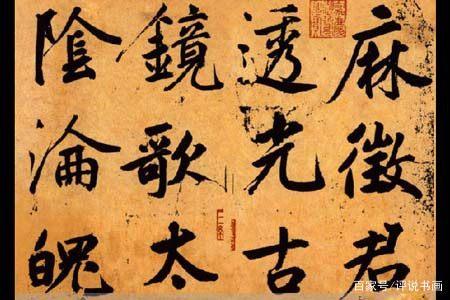 麻徵君
透光古
鏡歌太
陰淪魄
百家号/评说书画